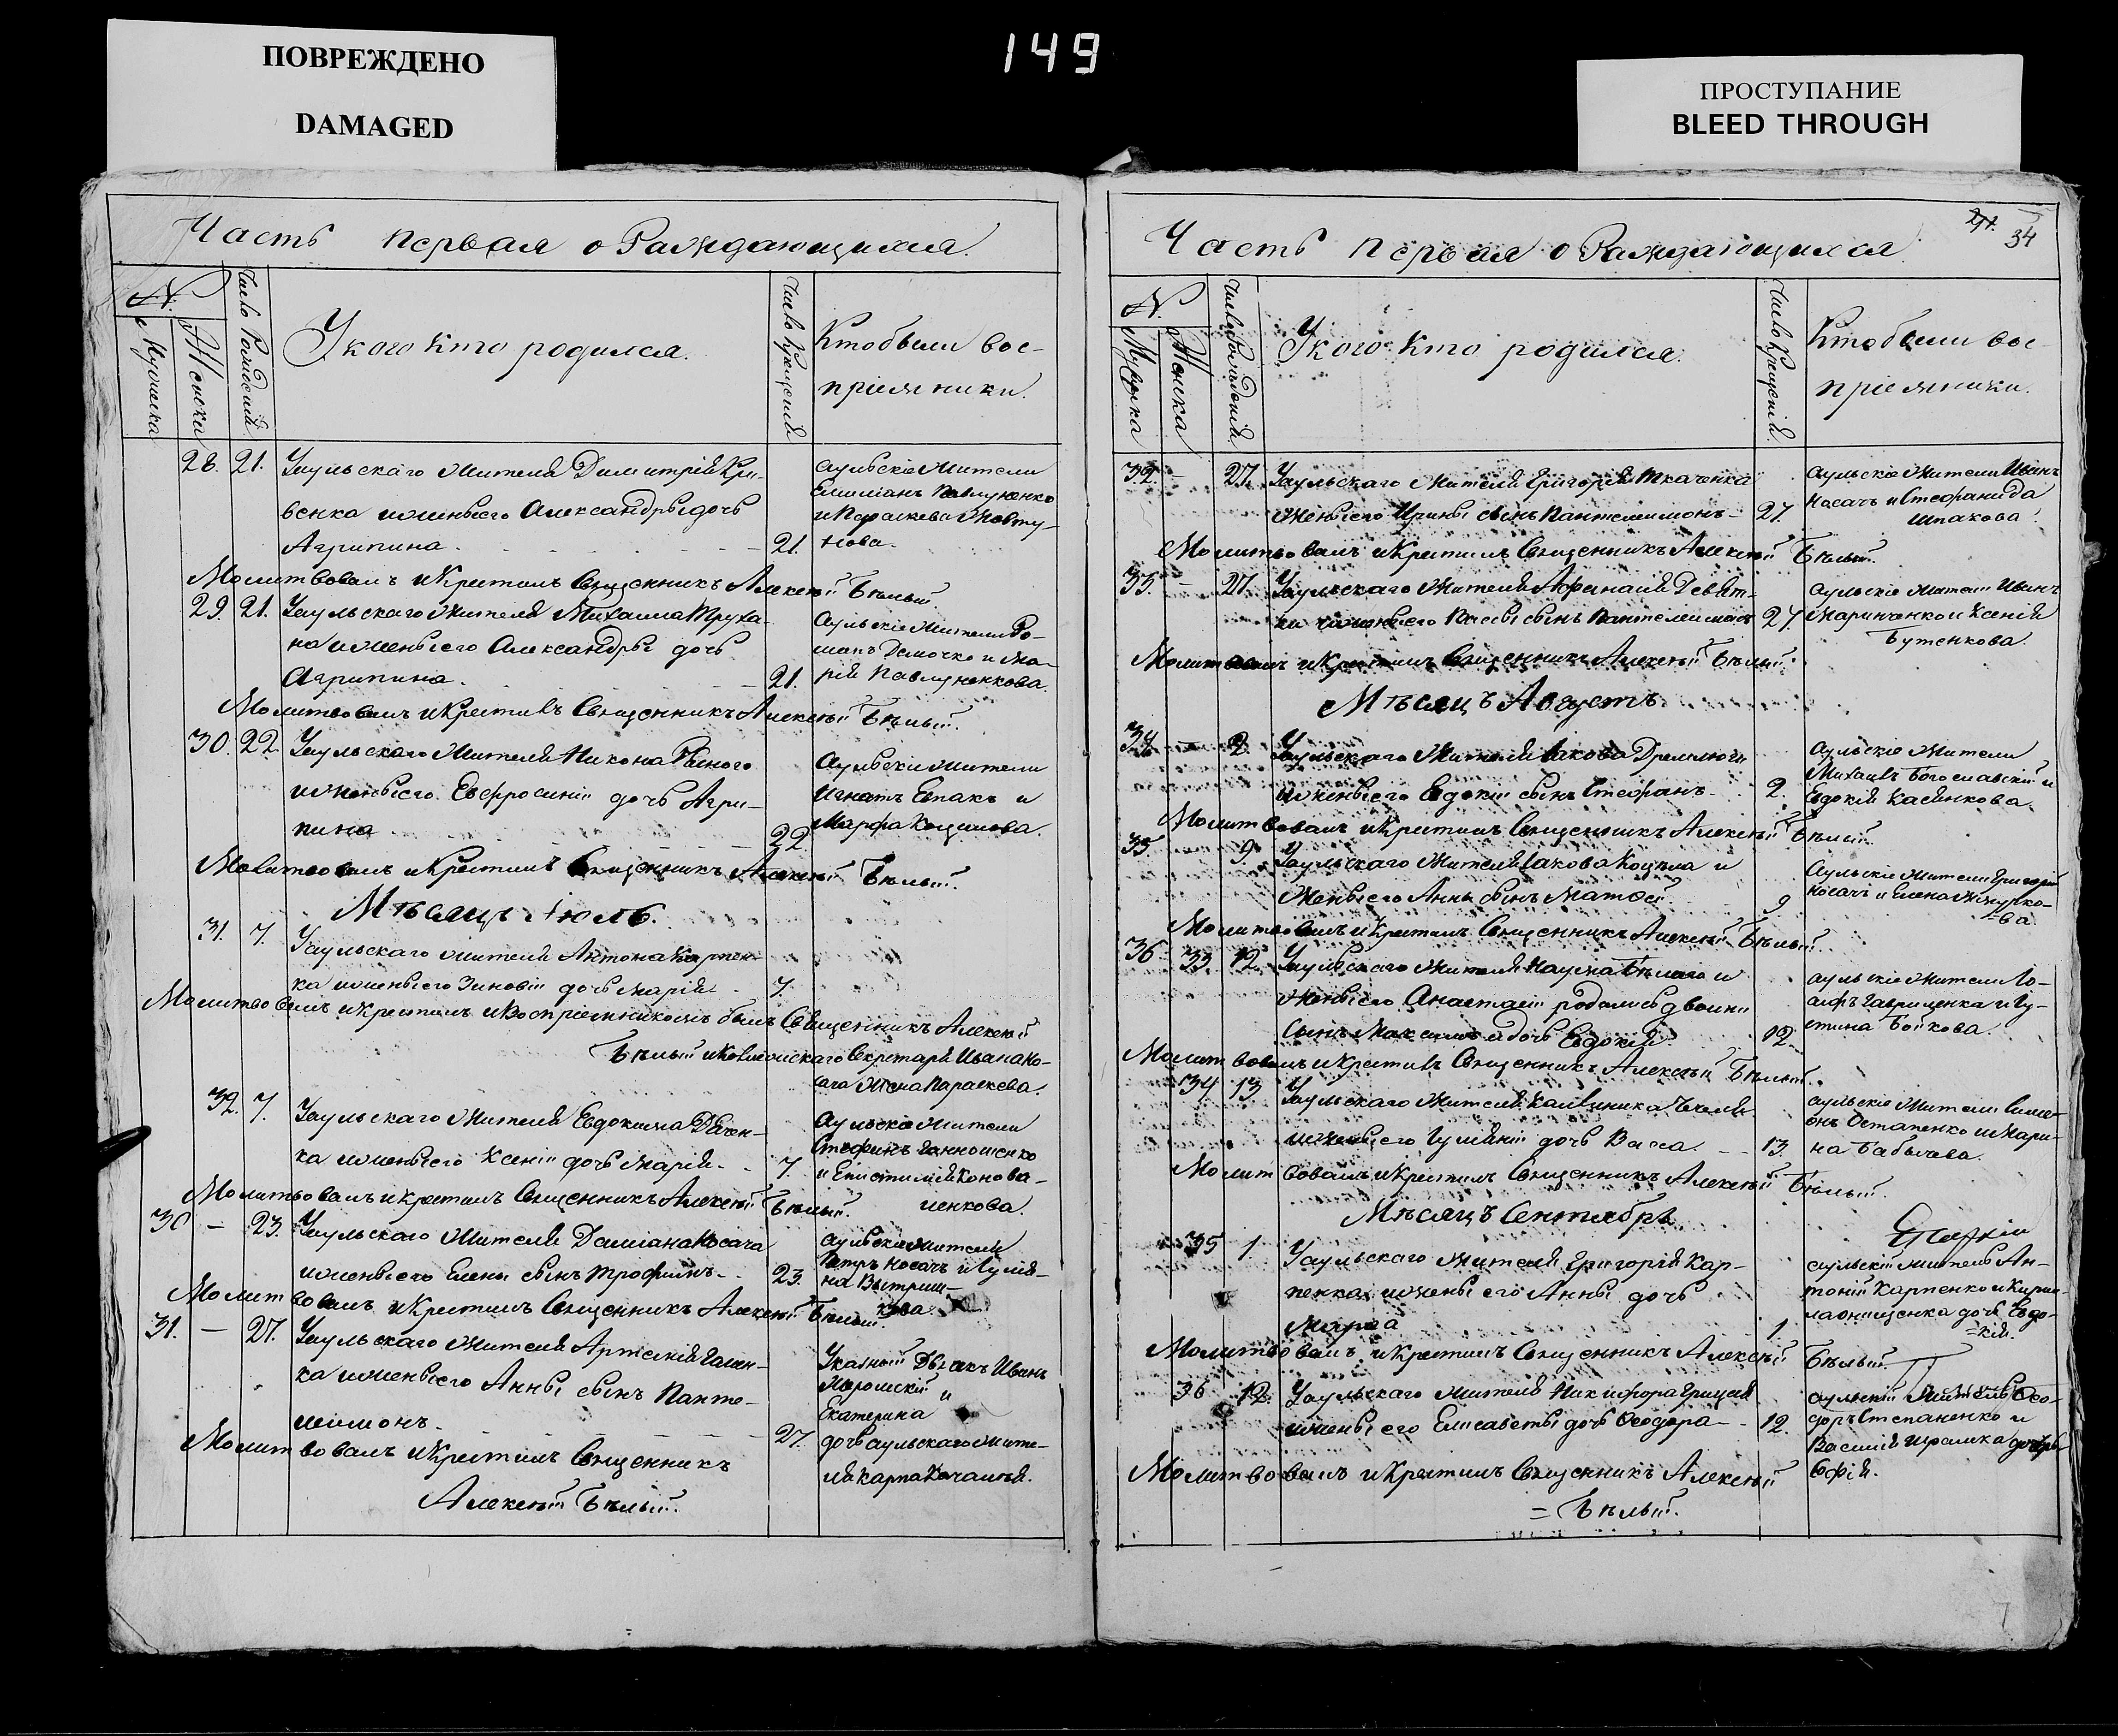 ПОВРЕЖДЕНО
DAMAGED
149
ПРОСТУПАНИЕ
BLEED THROUGH
Часть первая о Раждающихся.
N.
Мужеска
Женска
Число Рождений
У кого кто родился.
Число Крещений
Кто были вос-
пріемники.
28. 21. Уаульскаго Жителя Димитрія Кри-
венка иженыего Александры дочь
Агрипина 21.
аульскіе Жители
Емиліанъ Павлуненко
и Параскева Жовту-
хова.
Молитвовалъ икрестилъ Священникъ Алексѣй Бѣлый.
29. 21. Уаульскаго Жителя Михаила Труха-
на иженыего Александры дочь
Агрипина 21.
Аульскіе Жители Ро-
манъ Демочко и Ма-
рія Павлуненкова.
Молитвовалъ икрестилъ Священникъ Алексѣй Бѣлый.
30. 22 Уаульскаго Жителя Никона
иженыего Евфросиніи дочь Агри-
пина 22
Аульскіе Жители
Игнатъ и
Марфа
Молитвовалъ икрестилъ Священникъ Алексѣй Бѣлый.
Мѣсяцъ Іюль.
31. 7. Уаульскаго жителя Антона Карпен-
ка иженыего Зиновіи дочь Марія 7.
Молитвовалъ икрестилъ и Воспріемникомъ былъ Священникъ Алексѣй
Бѣлый Секретаря Ивана Но-
сача Жена Параскева.
32. 7. Уаульскаго Жителя Евдокима
ка иженыего Ксеніи дочь Марія 7.
Аульскіе Жители
Стефанъ
и Епистимія Конова-
ленкова
Молитвовалъ икрестилъ Священникъ Алексѣй Бѣлый.
30 — 23. Уаульскаго Жителя Даміана Носача
иженыего Елены сынъ Трофимъ 23.
аульскіе жители
Петръ Носачъ и Іулія-
на
кова
Молитвовалъ икрестилъ Священникъ Алексѣй Бѣлый.
31. — 27. Уаульскаго Жителя Артемія
ка иженыего Анны сынъ Панте-
леімонъ 27.
Указный Дьякъ Иванъ
и
Екатерина
дочь аульскаго жите-
ля Карпа
Молитвовалъ икрестилъ Священникъ
Алексѣй Бѣлый.
34
Часть первая о Раждающихся.
N.
Мужеска
Женска
Число Рожденій
У кого кто родился.
Число Крещеній
Кто были вос-
пріемники.
32. — 27. Уаульскаго Жителя Григорія Ткаченка
иженыего Ирины сынъ Пантелеимонъ 27.
аульскіе Жители Иванъ
Носачъ и Стефанида
Шпакова
Молитвовалъ икрестилъ Священникъ Алексѣй Бѣлый.
33. — 27. Уаульскаго Жителя Афанасія Девят-
ки иженыего Вассы сынъ Пантелеимонъ 27
аульскіе жители Иванъ
Маринченко и Ксенія
Бутенкова.
Молитвовалъ икрестилъ Священникъ Алексѣй Бѣлый.
Мѣсяцъ Августъ.
34 — 2 Уаульскаго Жителя Іакова Дремлюги
иженыего Евдокіи сынъ Стефанъ 2.
аульскіе Жители
Михаилъ Богославскій и
Евдокія Касянкова.
Молитвовалъ икрестилъ Священникъ Алексѣй Бѣлый.
35 9. Уаульскаго Жителя Іакова Коцюма и
Женыего Анны сынъ Матѳей. 9
Аульскіе Жители Григорій
Носачъ и Елена
=ва
Молитвовалъ икрестилъ Священникъ Алексѣй Бѣлый.
36 33. 12. Уаульскаго Жителя Наума Бѣлаго и
Женыего Анастасіи родились двойни
Сынъ Максимъ адочь Евдокія 12
аульскіе Жители Іо-
сифъ Гаврищенка и Іу-
стина Бойкова.
Молитвовалъ икрестилъ Священникъ Алексѣй Бѣлый.
34 13 Уаульскаго Жителя Каллиника
иженыего Іуліаніи дочь Васса 13.
аульскіе Жители Симе-
онъ Остапенко и Мари-
на Бабичева.
Молитвовалъ икрестилъ Священникъ Алексѣй Бѣлый.
Мѣсяцъ Сентябрь
35 1 Уаульскаго Жителя Григорія Кар-
пенка иженыего Анны дочь
Марѳа 1.
аульскій житель Ан-
тоній Карпенко и Кирил-
ла Онищенка дочь Евдо-
=кія.
Молитвовалъ икрестилъ Священникъ Алексѣй Бѣлый.
36 12. Уаульскаго Жителя Никифора Грицая
иженыего Елисаветы дочь Ѳеодора 12.
аульскій Житель Ѳео-
доръ Степаненко и
Василія дочерь
Софія.
Молитвовалъ икрестилъ Священникъ Алексѣй
= Бѣлый.